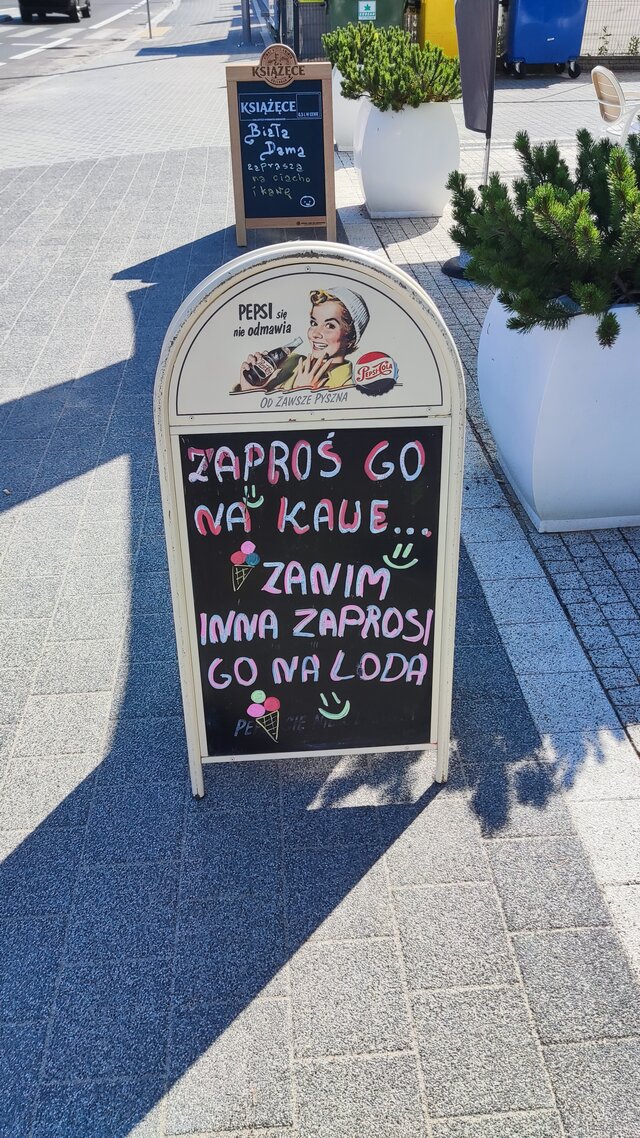 KSIĄŻĘCE
KSIĄŻĘCE
Biała
Dama
zaprasza
na ciacho
i kawę
PEPSI się
nie odmawia
PEPSI-COLA
OD ZAWSZE PYSZNA
ZAPROŚ GO
NA KAWE...
ZANIM
INNA ZAPROSI
GO NA LODA